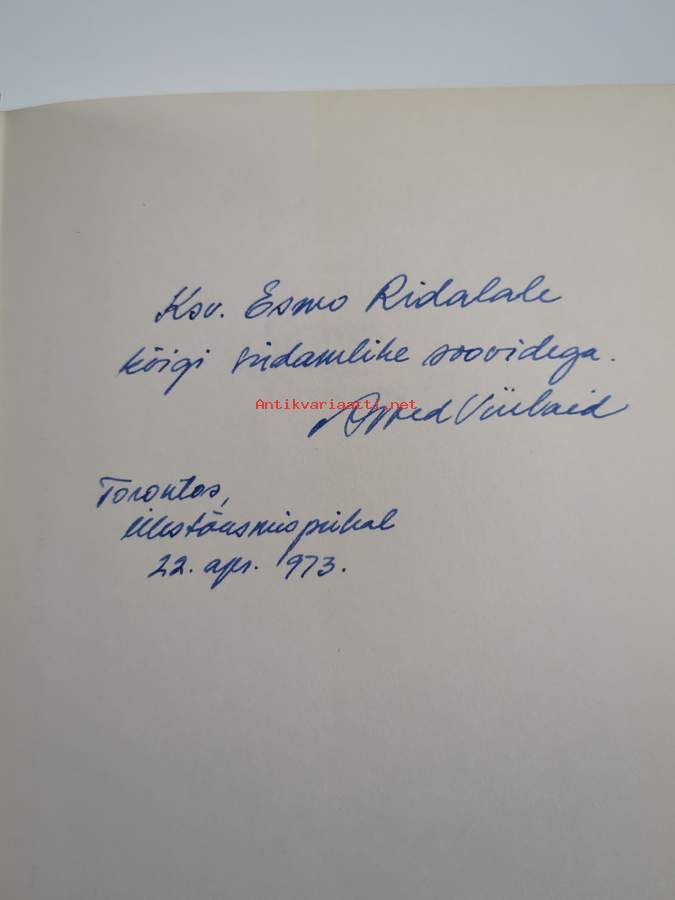 Ksv. Esmo Ridalale
kõigi südamlike soovidega.
Antikvariaatti.net
Arved Viirlaid
Torontos,
Ülestõusmispühal
22. apr. 1973.